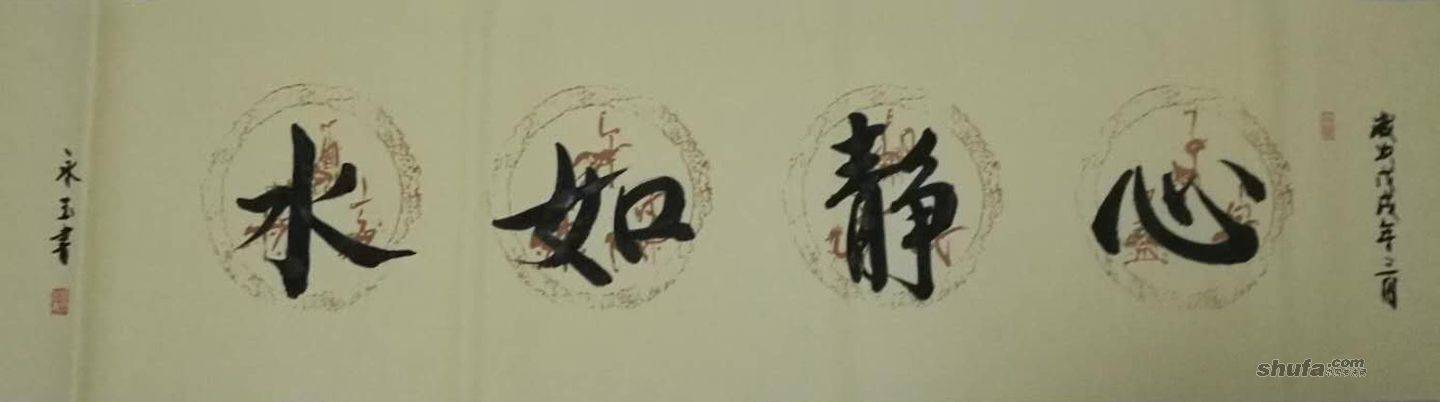 岁次戊戌年二月
心静如水
永玉书
shufa.com